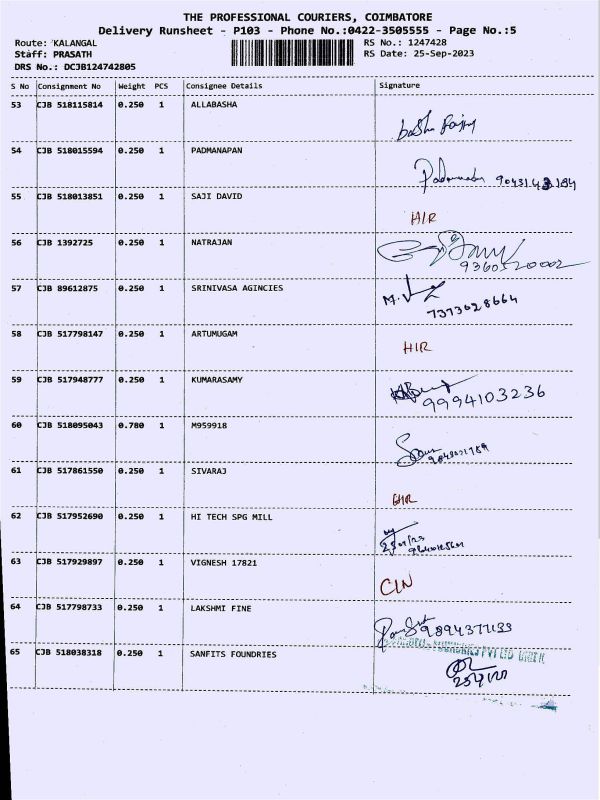 THE PROFESSIONAL COURIERS, COIMBATORE
Delivery Runsheet - P103 - Phone No.:0422-3505555 - Page No.:5
Route: KALANGAL RS No.: 1247428
Staff: PRASATH RS Date: 25-Sep-2023
DRS No.: DCJB124742805
S No Consignment No Weight PCS Consignee Details Signature
53 CJB 518115814 0.250 1 ALLABASHA
54 CJB 518015594 0.250 1 PADMANAPAN
55 CJB 518013851 0.250 1 SAJI DAVID
HIR
56 CJB 1392725 0.250 1 NATRAJAN
9360520002
57 CJB 89612875 0.250 1 SRINIVASA AGINCIES
7373028664
58 CJB 517798147 0.250 1 ARTUMUGAM
HIR
59 CJB 517948777 0.250 1 KUMARASAMY
9994103236
60 CJB 518095043 0.780 1 M959918
61 CJB 517861550 0.250 1 SIVARAJ
HIR
62 CJB 517952690 0.250 1 HI TECH SPG MILL
63 CJB 517929897 0.250 1 VIGNESH 17821
CIN
64 CJB 517798733 0.250 1 LAKSHMI FINE
65 CJB 518038318 0.250 1 SANFITS FOUNDRIES